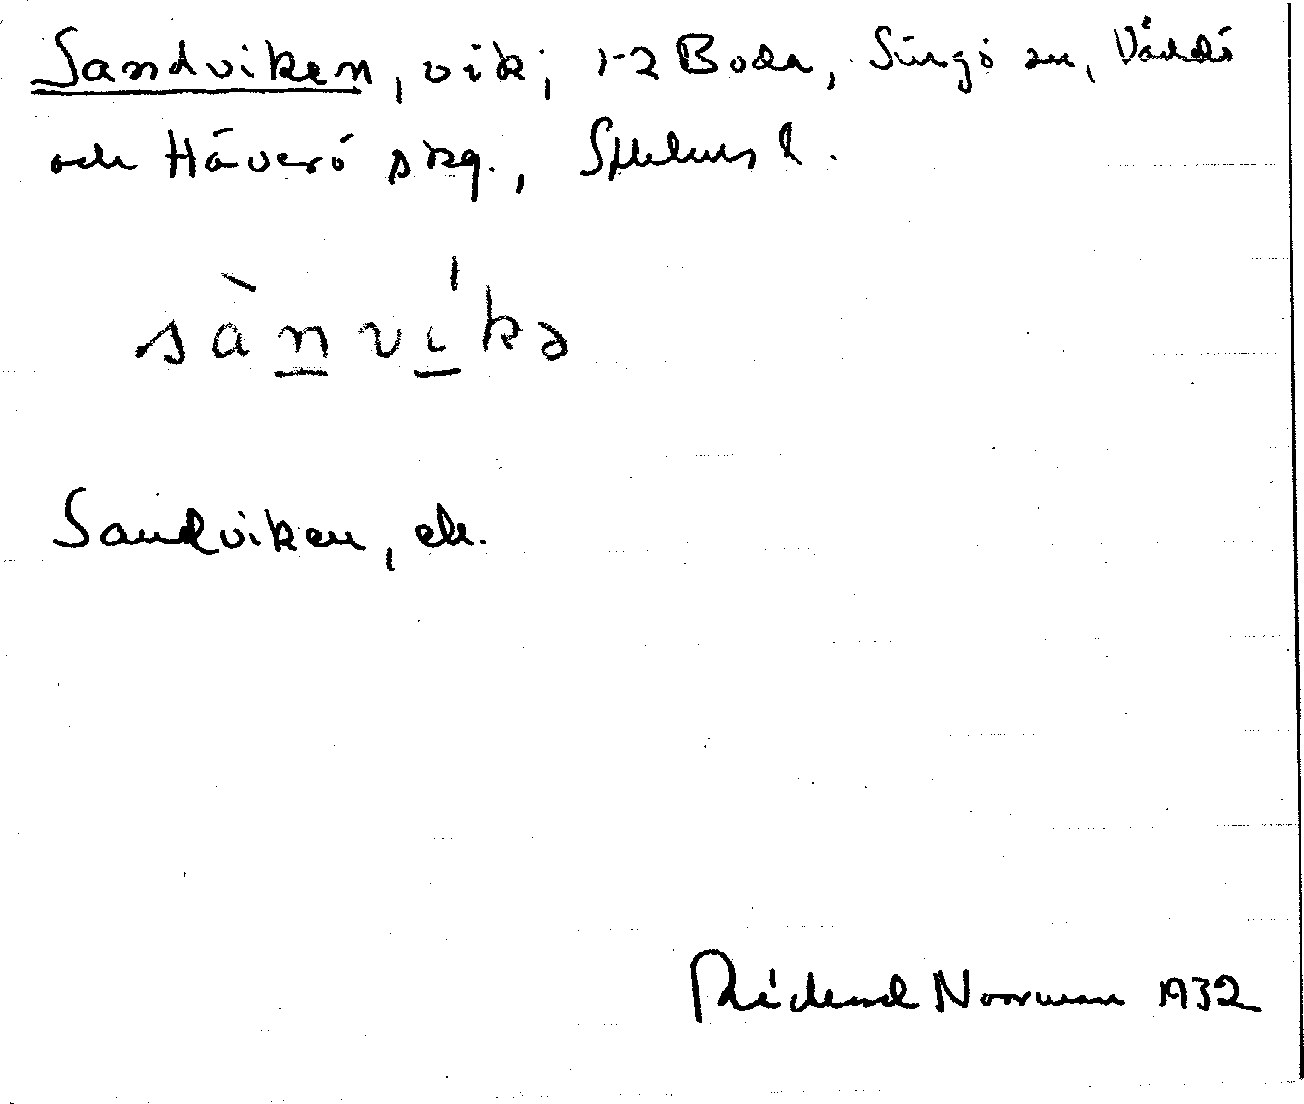 Sandviken, vik, 1-2 Boda, Singö sn, Väddö
och Häverö skg., Sthlms l.
sànvíkə
Sandviken, ek.
Rickard Norrman 1932